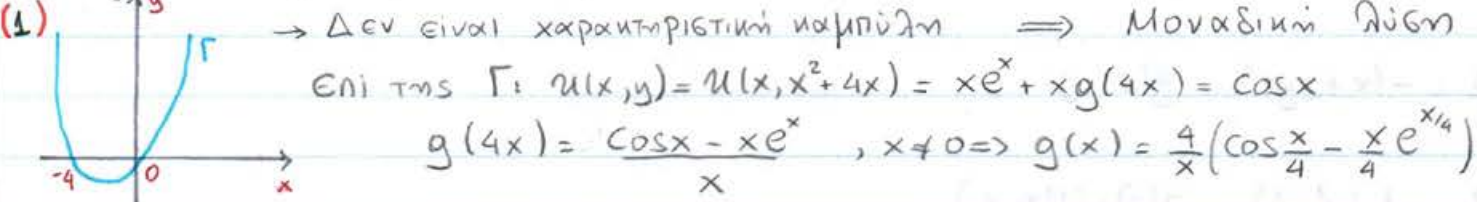 (1) y Γ → Δεν είναι χαρακτηριστική καμπύλη ⟹ Μοναδική λύση
Επί της Γ: u(x,y) = u(x, x²+4x) = xeˣ + xg(4x) = cosx
g(4x) = (cosx - xeˣ)/x , x≠0 => g(x) = 4/x (cos x/4 - x/4 e^{x/4})
-4 0 x